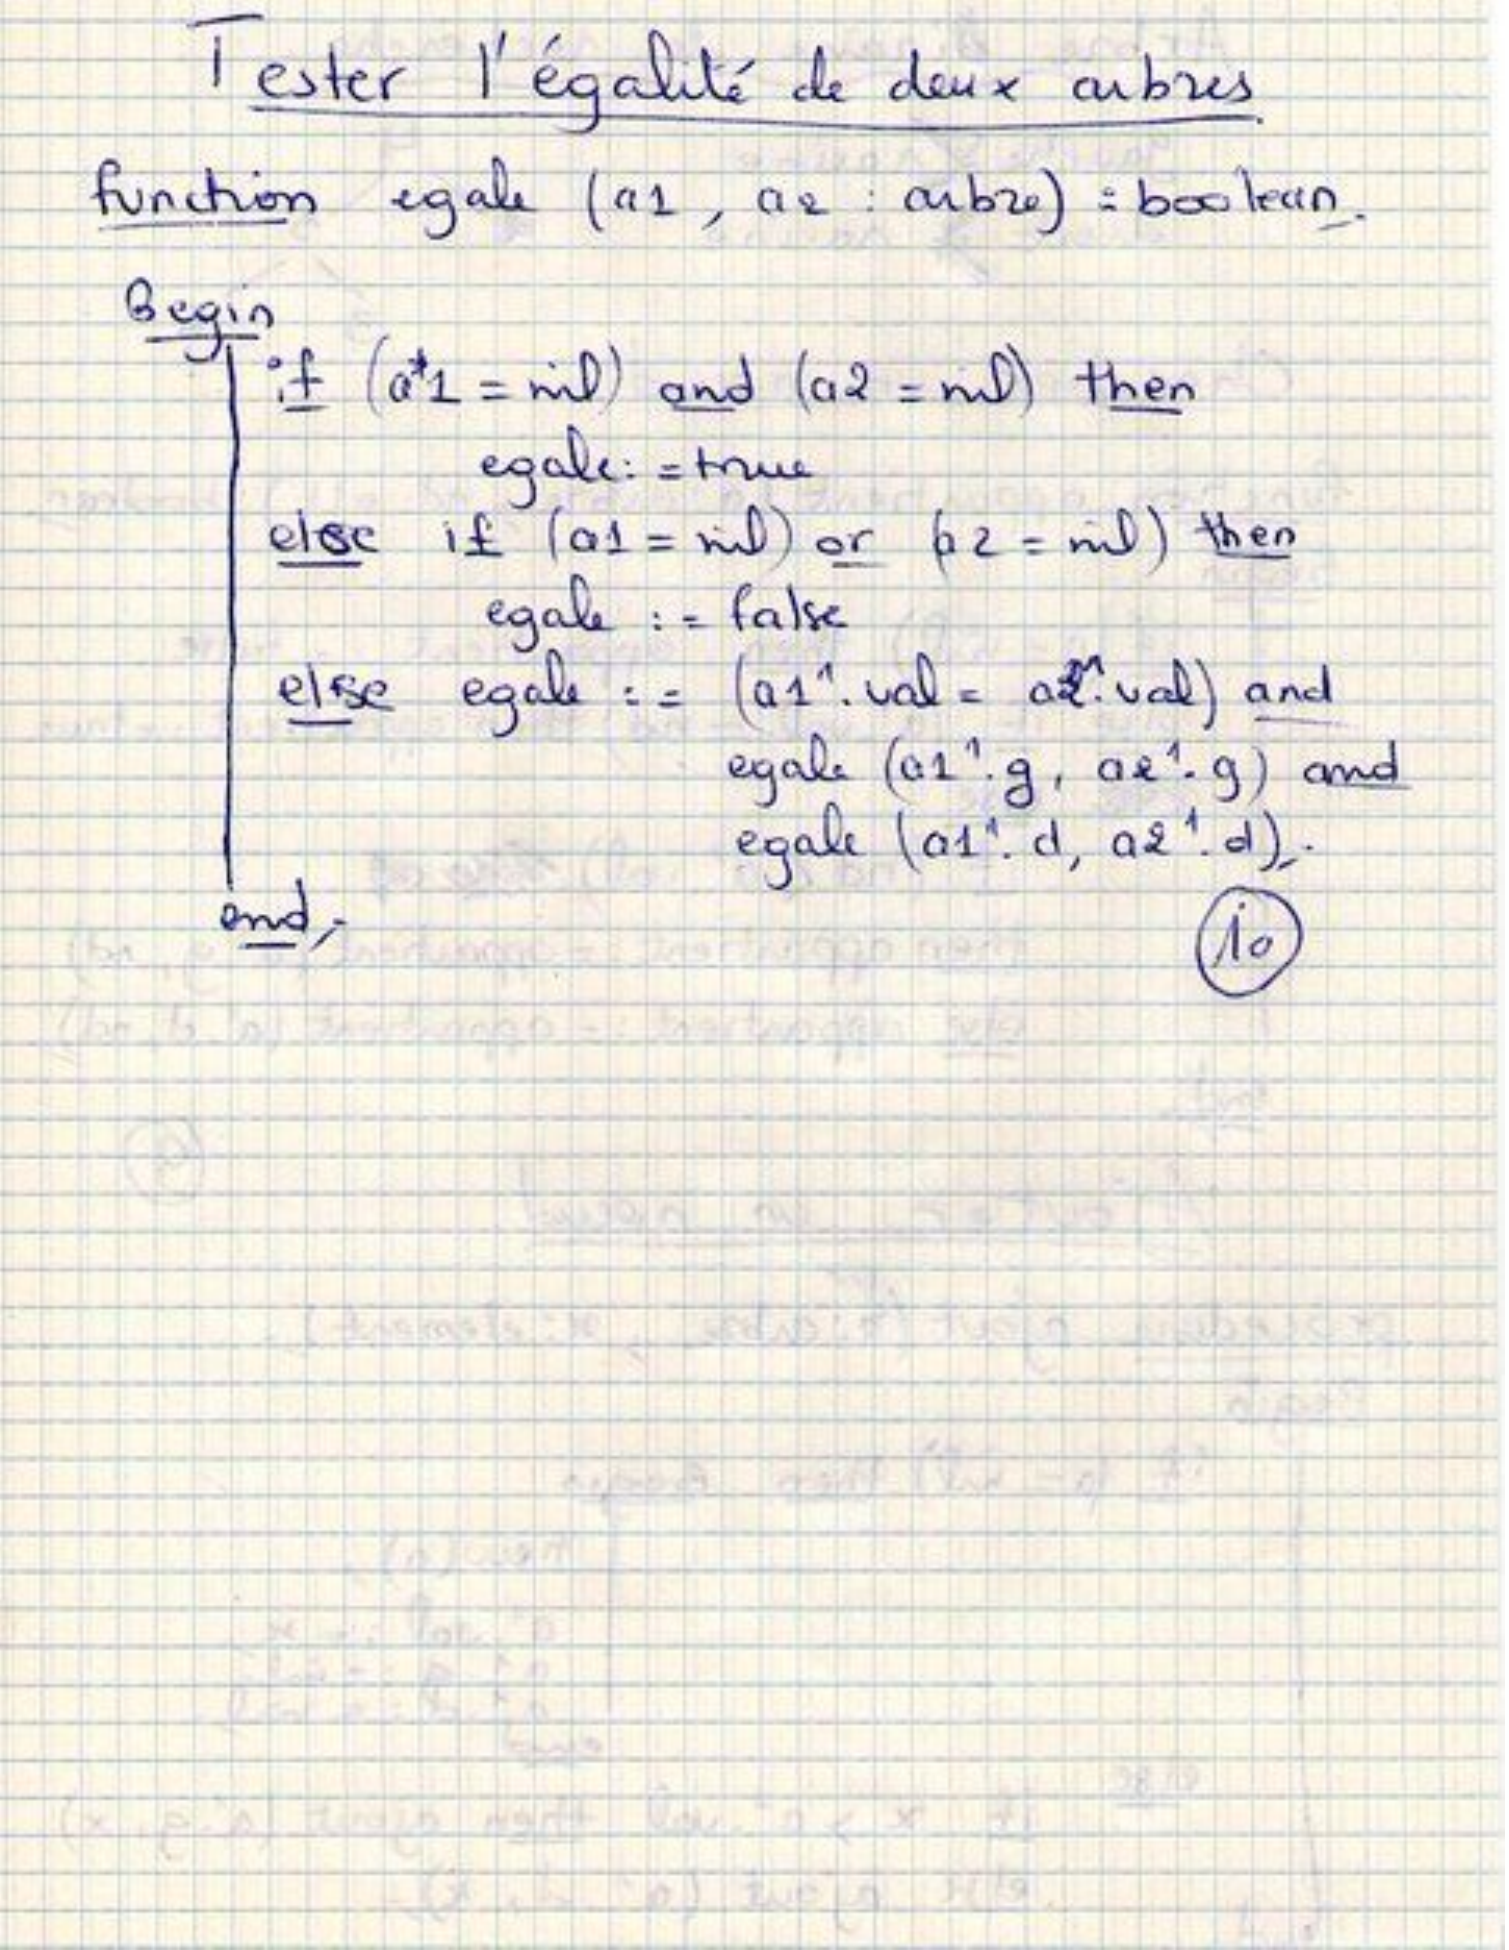 Tester l'égalité de deux arbres
function egale (a1, a2 : arbre) : boolean.
Begin
if (a1 = nil) and (a2 = nil) then
egale := true
else if (a1 = nil) or (a2 = nil) then
egale := false
else egale := (a1^.val = a2^.val) and
egale (a1^.g, a2^.g) and
egale (a1^.d, a2^.d);
end;
10